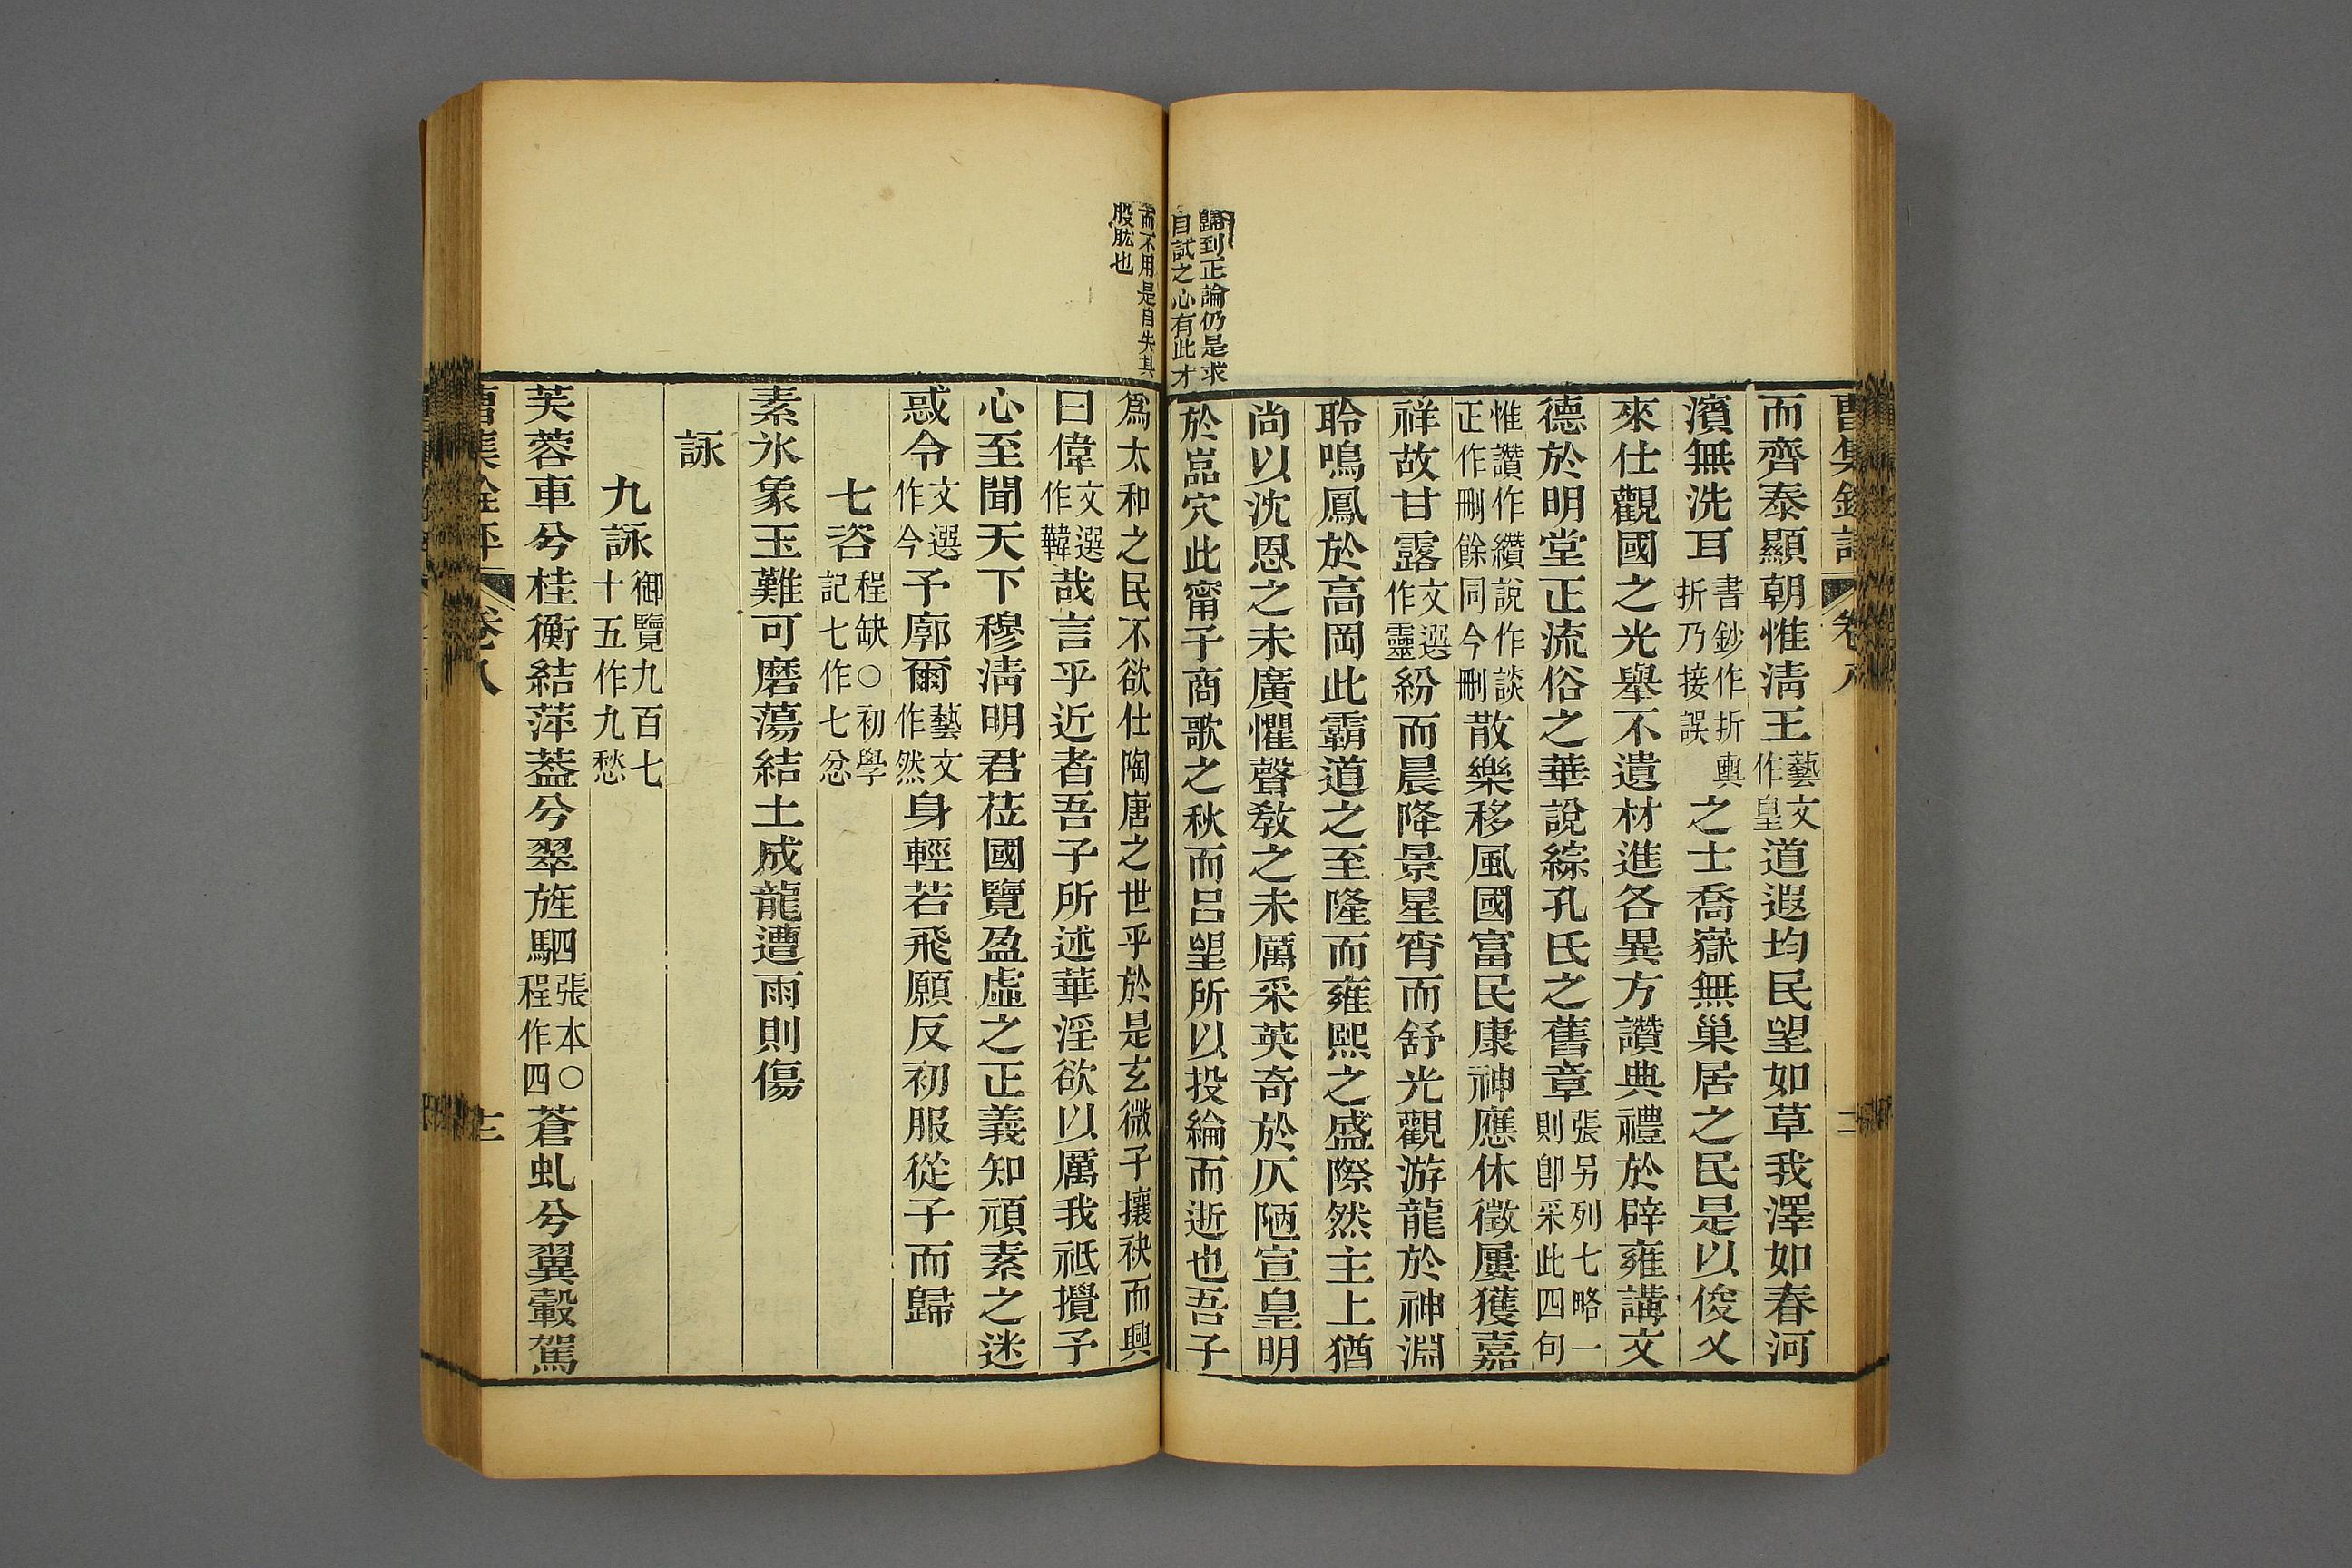 歸到正論仍是求
自試之心有此才
而齊泰顯朝惟淸王藝文作皇道遐均民望如草我澤如春河
濱無洗耳書鈔作折輿折乃接誤之士喬嶽無巢居之民是以俊乂
來仕觀國之光舉不遺材進各異方讚典禮於辟雍講文
德於明堂正流俗之華說綜孔氏之舊章張另列七略一則卽采此四句
惟讚作纘說作談正作刪餘同今刪散樂移風國富民康神應休徵屢獲嘉
祥故甘露文選作靈紛而晨降景星宵而舒光觀游龍於神淵
聆鳴鳳於高岡此霸道之至隆而雍熙之盛際然主上猶
尚以沈恩之未廣懼聲敎之未厲采英奇於仄陋宣皇明
於嵓穴此甯子商歌之秋而呂望所以投綸而逝也吾子
而不用是自失其
股肱也
爲太和之民不欲仕陶唐之世乎於是玄微子攘袂而興
曰偉文選作韡哉言乎近者吾子所述華淫欲以厲我祗攪予
心至聞天下穆淸明君莅國覽盈虛之正義知頑素之迷
惑令文選作今予廓爾藝文作然身輕若飛願反初服從子而歸
七咨程缺○初學記七作七忿
素氷象玉難可磨蕩結土成龍遭雨則傷
詠
九詠御覽九百七十五作九愁
芙蓉車兮桂衡結萍葢兮翠旌駟張本○程作四蒼虬兮翼轂駕
卷八